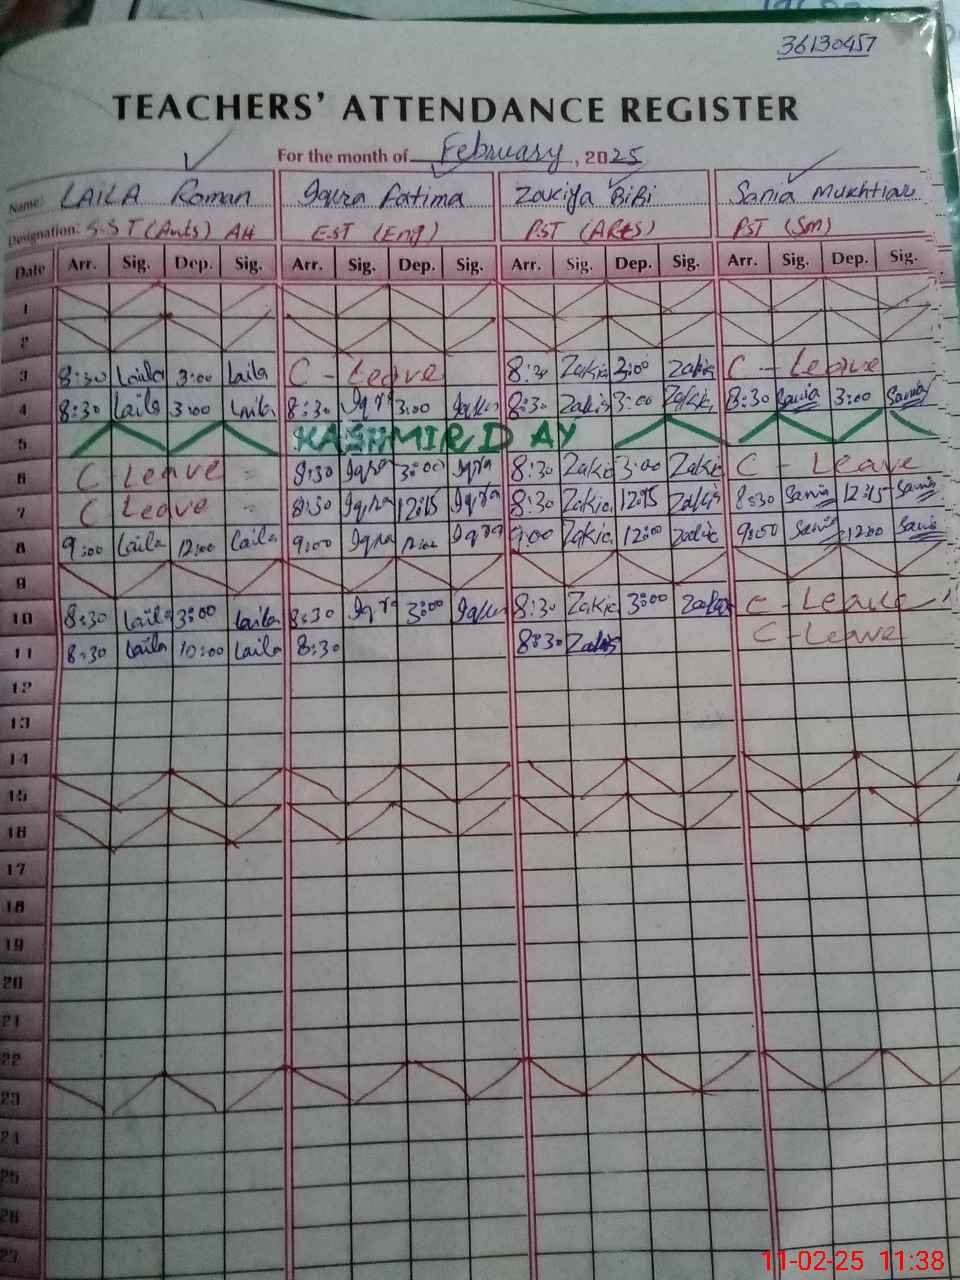 36130457
TEACHERS' ATTENDANCE REGISTER
For the month of February, 2025
Name: LAILA Roman Iqura Fatima Zakiya BiBi Sania Mukhtiar
Designation: S.S T (Arts) AH EST (Eng) PST (ARts) PST (Sm)
Date Arr. Sig. Dep. Sig. Arr. Sig. Dep. Sig. Arr. Sig. Dep. Sig. Arr. Sig. Dep. Sig.
1
2
3 8:30 Laila 3:00 Laila C - Leave 8:30 Zakia 3:00 Zakia C - Leave
4 8:30 Laila 3:00 Laila 8:30 Iqra 3:00 Iqra 8:30 Zakia 3:00 Zakia 8:30 Sania 3:00 Sania
5 KASHMIR DAY
6 C - Leave 8:30 Iqra 3:00 Iqra 8:30 Zakia 3:00 Zakia C - Leave
7 C Leave - 8:30 Iqra 12:15 Iqra 8:30 Zakia 12:15 Zakia 8:30 Sania 12:15 Sania
8 9:00 Laila 12:00 Laila 9:00 Iqra 12:00 Iqra 9:00 Zakia 12:00 Zakia 9:00 Sania 12:00 Sania
9
10 8:30 Laila 3:00 Laila 8:30 Iqra 3:00 Iqra 8:30 Zakia 3:00 Zakia C - Leave
11 8:30 Laila 10:00 Laila 8:30 8:30 Zakia C - Leave
12
13
14
15
16
17
18
19
20
21
22
23
24
25
26
27
11-02-25 11:38